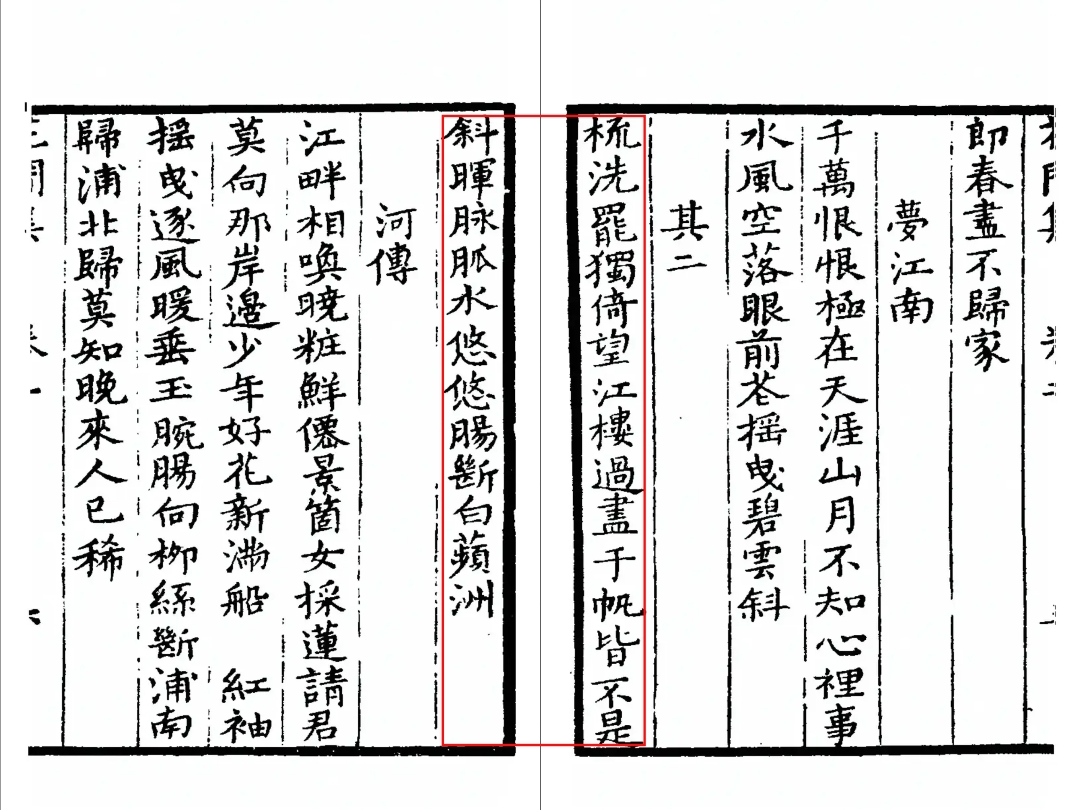 即春盡不歸家
夢江南
千萬恨恨極在天涯山月不知心裡事
水風空落眼前花摇曳碧雲斜
其二
梳洗罷獨倚望江樓過盡千帆皆不是
斜暉脉脈水悠悠腸斷白蘋洲
河傳
江畔相喚曉粧鮮僊景箇女採蓮請君
莫向那岸邊少年好花新滿船 紅袖
摇曳逐風暖垂玉腕腸向柳絲斷浦南
歸浦北歸莫知晚來人已稀